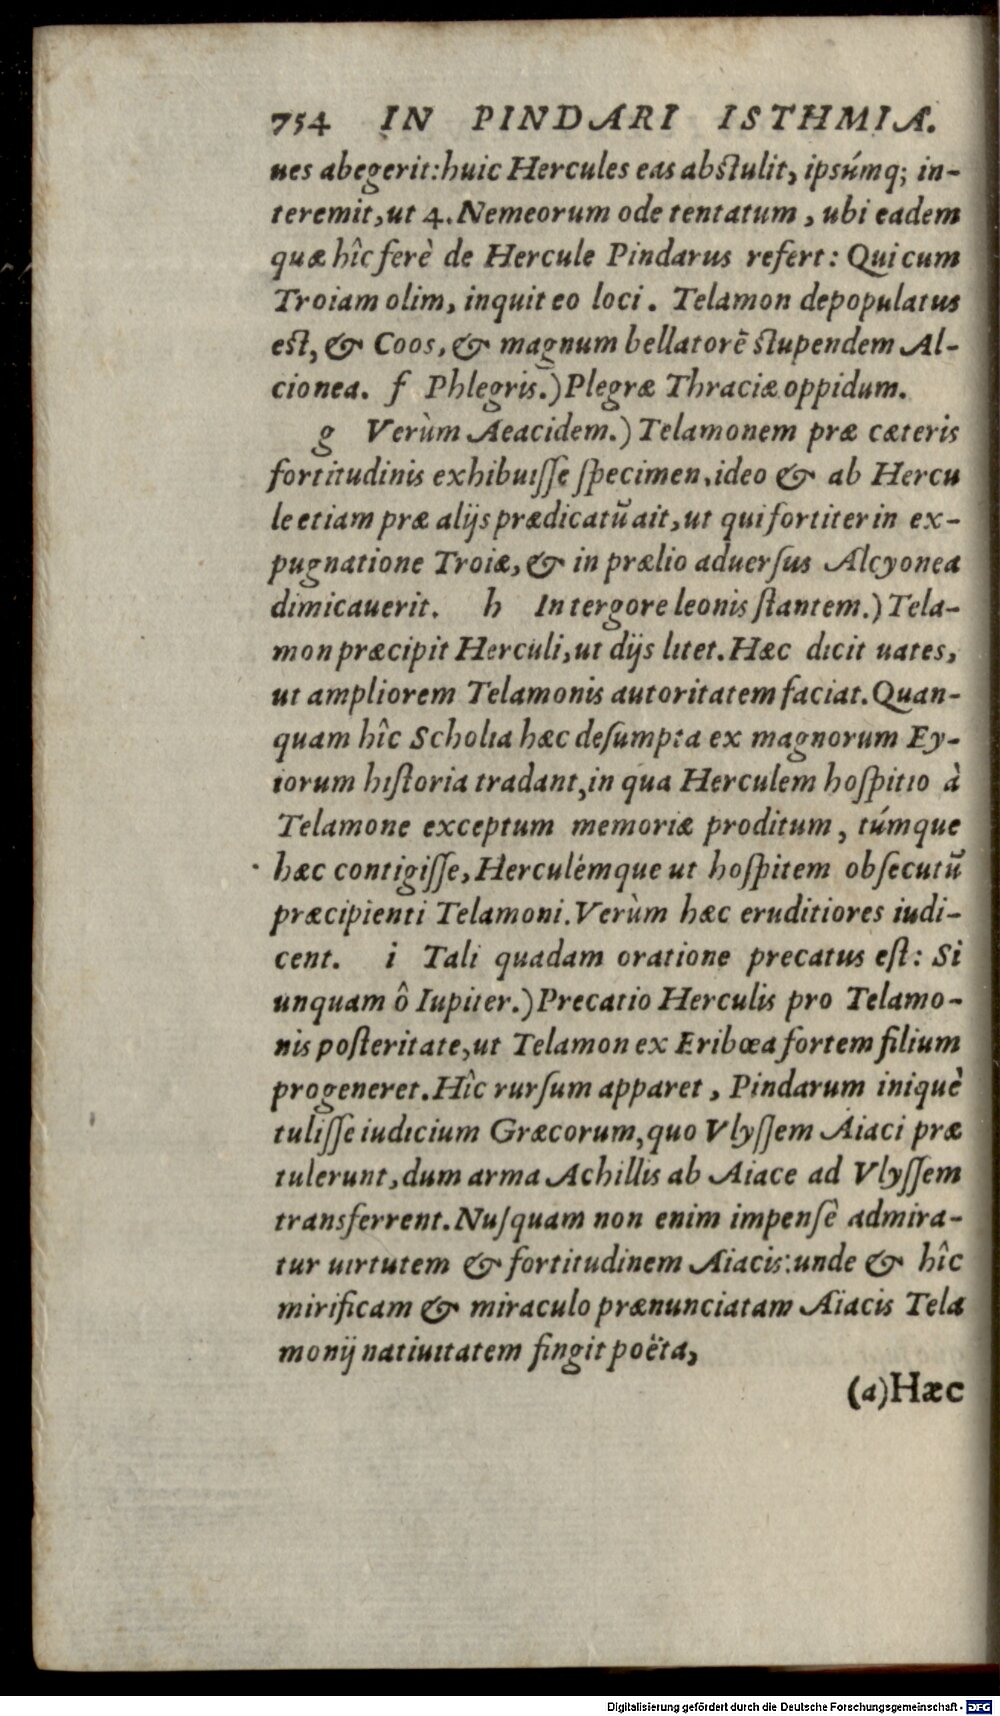 754 IN PINDARI ISTHMIA.
ues abegerit: huic Hercules eas abſtulit, ipsúmq; in-
teremit, ut 4. Nemeorum ode tentatum, ubi eadem
quæ hîc ferè de Hercule Pindarus refert: Qui cum
Troiam olim, inquit eo loci. Telamon depopulatus
eſt, & Coos, & magnum bellatorē ſtupendem Al-
cionea. f Phlegris.) Plegræ Thraciæ oppidum.
g Verùm Aeacidem.) Telamonem præ cæteris
fortitudinis exhibuiſſe ſpecimen, ideo & ab Hercu
le etiam præ alijs prædicatū ait, ut qui fortiter in ex-
pugnatione Troiæ, & in prælio aduerſus Alcyonea
dimicauerit. h In tergore leonis ſtantem.) Tela-
mon præcipit Herculi, ut dijs litet. Hæc dicit uates,
ut ampliorem Telamonis autoritatem faciat. Quan-
quam hîc Scholia hæc deſumpta ex magnorum Ey-
iorum hiſtoria tradant, in qua Herculem hoſpitio à
Telamone exceptum memoriæ proditum, túmque
hæc contigiſſe, Herculémque ut hoſpitem obſecutū
præcipienti Telamoni. Verùm hæc eruditiores iudi-
cent. i Tali quadam oratione precatus eſt: Si
unquam ô Iupiter.) Precatio Herculis pro Telamo-
nis poſteritate, ut Telamon ex Eribœa fortem filium
progeneret. Hîc rurſum apparet, Pindarum iniquè
tuliſſe iudicium Græcorum, quo Vlyſſem Aiaci præ
tulerunt, dum arma Achillis ab Aiace ad Vlyſſem
transferrent. Nuſquam non enim impenſè admira-
tur uirtutem & fortitudinem Aiacis: unde & hîc
mirificam & miraculo prænunciatam Aiacis Tela
monij natiuitatem fingit poëta,
(a) Hæc
Digitalisierung gefördert durch die Deutsche Forschungsgemeinschaft - DFG